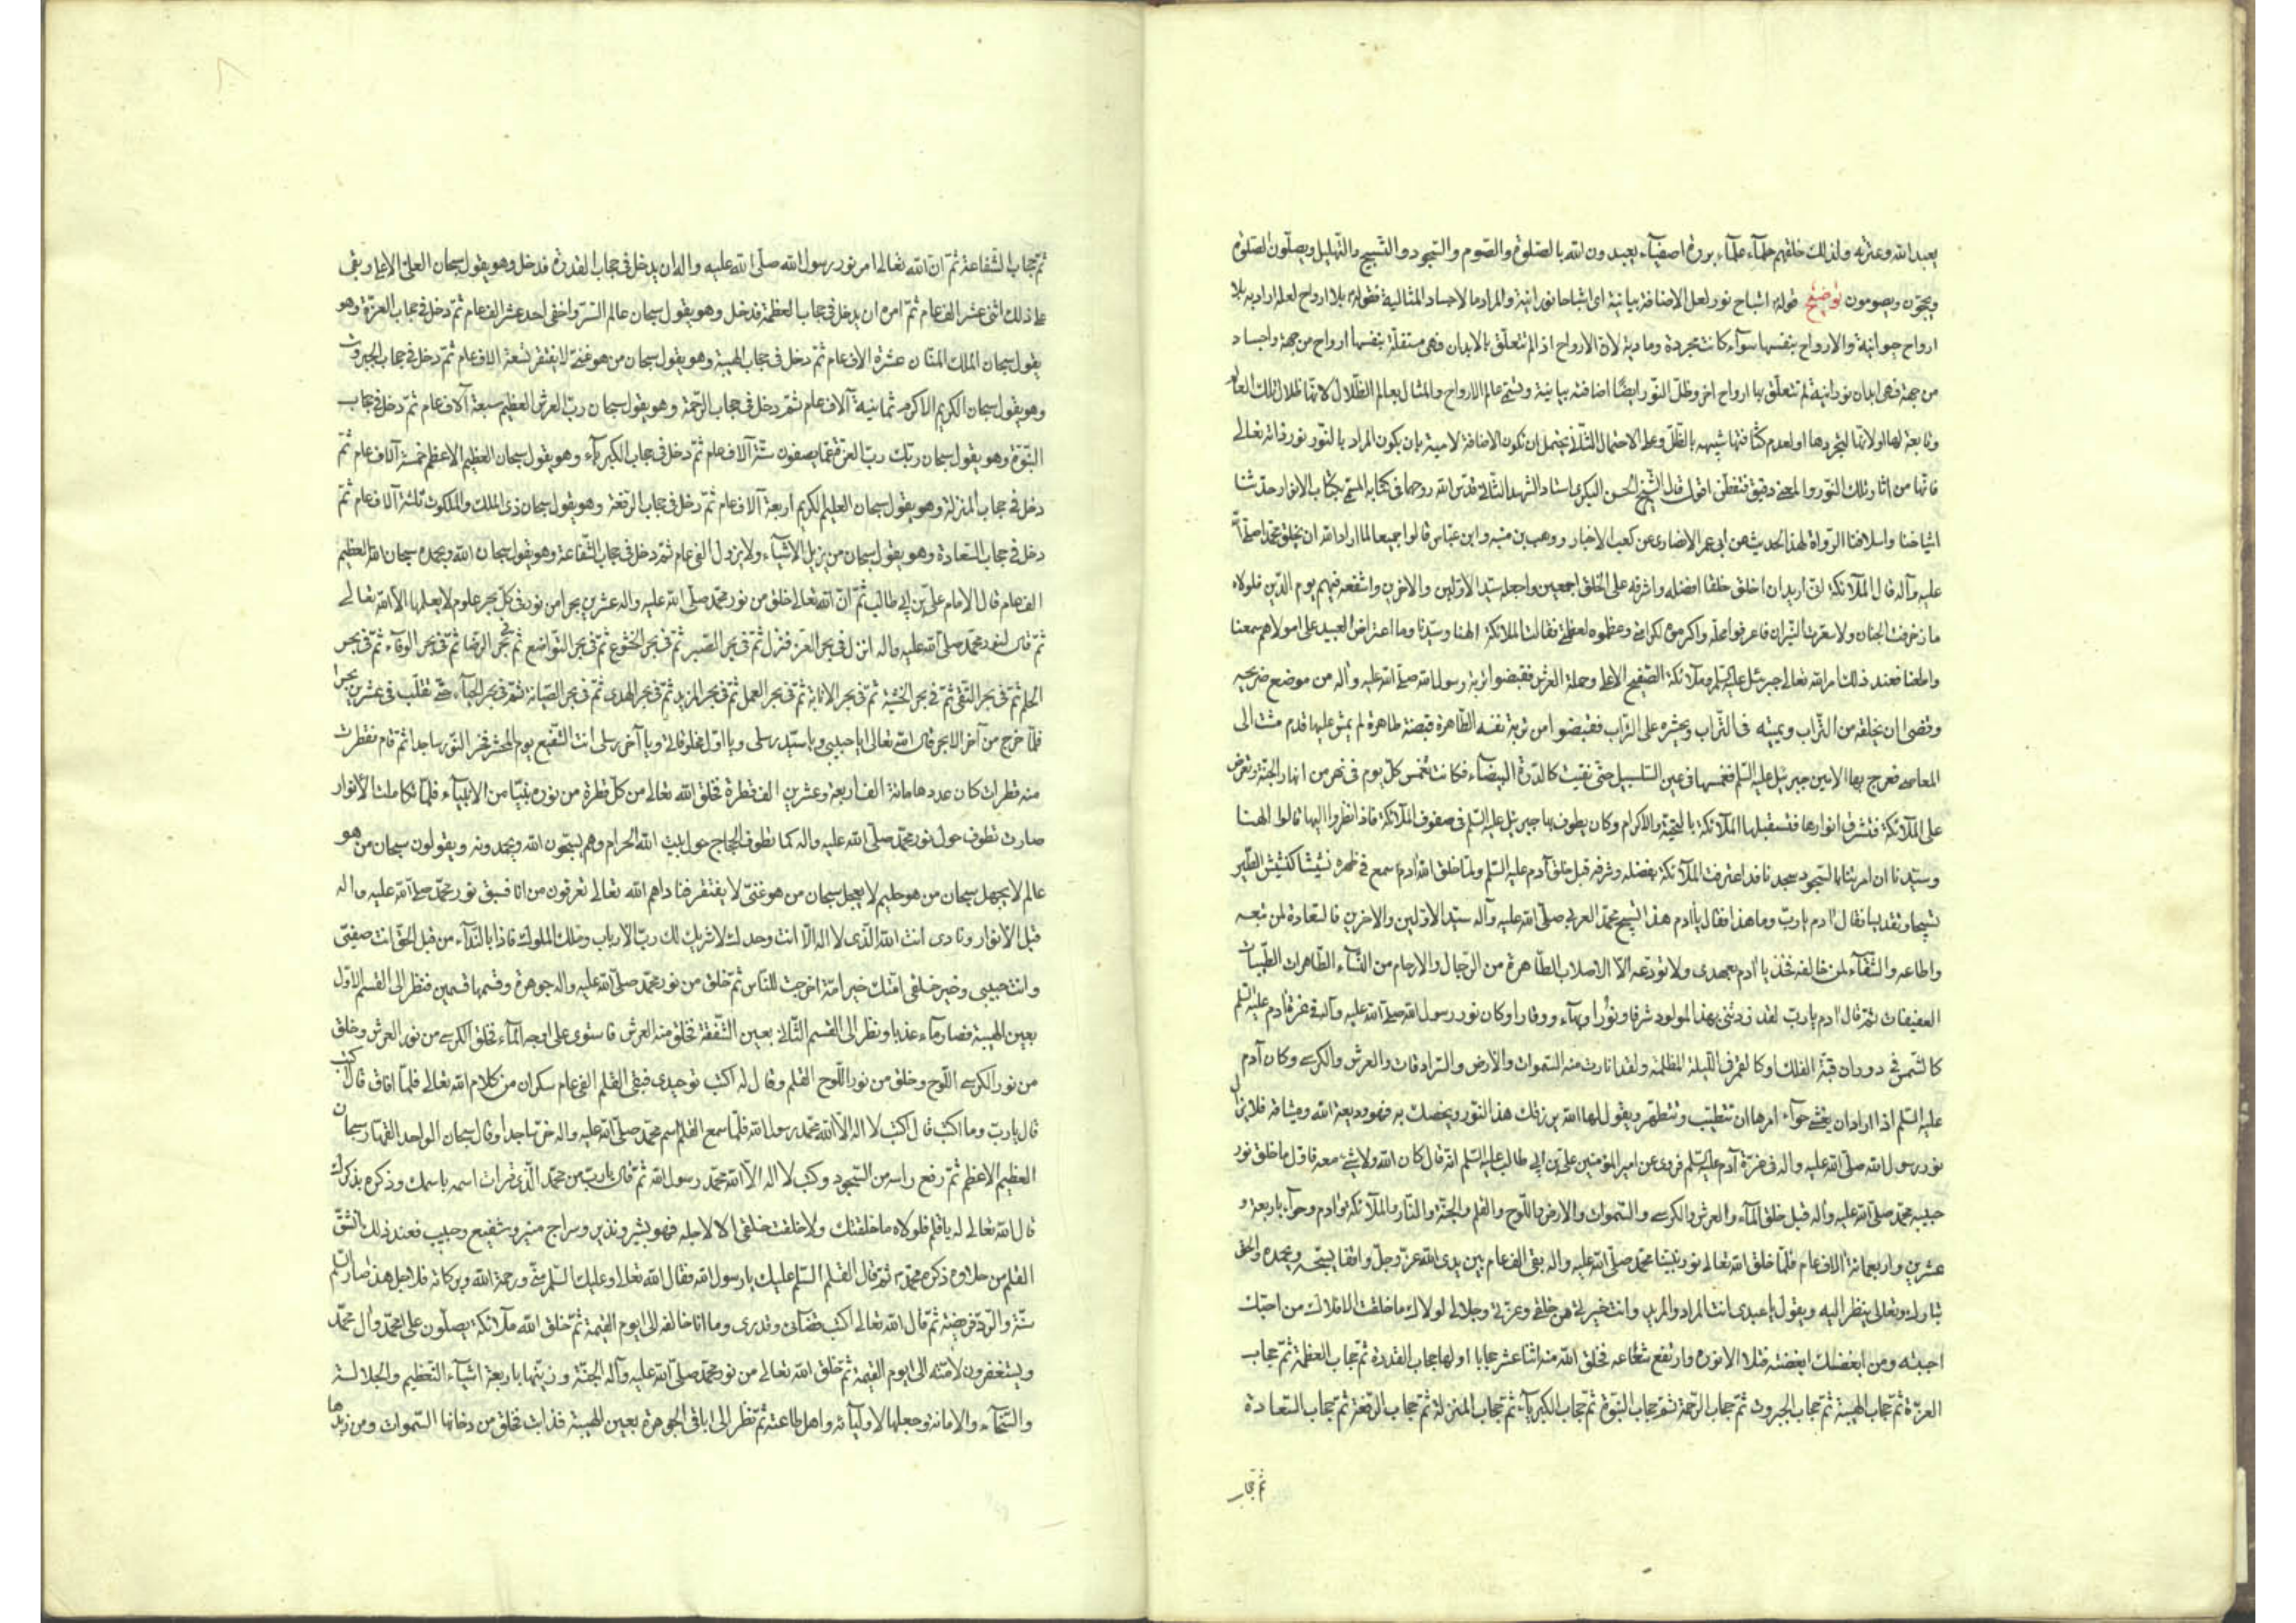 يعبد الله وعترته ولذلك خلقهم حلمآء علمآء بررة اصفيآء يعبدون الله بالصلوة والصوم والسجود والتسبيح والتهليل ويصلون الصلوة
ويحجون ويصومون توضيح قوله اشباح نور لعل الاضافة بيانية اى اشباحا نورانية والمراد ما الاجساد المثالية فقوله بلا ارواح لعله اراد به بلا
ارواح حيوانية والارواح بنفسها سوآء كانت مجردة ومادية لان الارواح اذا لم تتعلق بالابدان فهى مستقلة بنفسها ارواح من جهة واجساد
من جهة فهى ابدان نورانية لم تتعلق بها ارواح اخر وظل النور ايضا اضافته بيانية وتسمى عالم الارواح والمثال بعالم الظلال لانها ظلال تلك العالم
وتابعة لها او لانها لتجردها او لعدم كثافتها شبيهة بالظل وعلى الاحتمال الثانى يحتمل ان تكون الاضافة لامية بان يكون المراد بالنور نور ذاته تعالى
فانها من اثار ذلك النور والمعنى دقيق فتفطن اقول قال الشيخ ابو الحسن البكرى استاد الشهيد الثانى قدس الله روحهما فى كتابه المسمى بكتاب الانوار حدثنا
اشياخنا واسلافنا الرواة لهذا الحديث عن ابى عمر الانصارى عن كعب الاحبار ووهب بن منبه وابن عباس قالوا جميعا لما اراد الله ان يخلق محمدا صلى الله
عليه وآله قال لملآئكته انى اريد ان اخلق خلقا افضله واشرفه على الخلق اجمعين واجعله سيد الاولين والاخرين واشفعه فيهم يوم الدين فلولاه
ما زخرفت الجنان ولا سعرت النيران فاعرفوا محله واكرموه لكرامتى وعظموه لعظمتى فقالت الملائكة الهنا وسيدنا وما اعتراض العبيد على مولاهم سمعنا
واطعنا فعند ذلك امر الله تعالى جبرئيل عليه السلم وملآئكة الصفيح الاعلى وحملة العرش فقبضوا تربة رسول الله صلى الله عليه وآله من موضع ضريحه
وقضى ان يخلقه من التراب ويميته فى التراب ويحشره على التراب فقبضوا من تربة نفسه الطاهرة قبضة طاهرة لم يمش عليها قدم مشت الى
المعاصى فعرج بها الامين جبرئيل عليه السلم فغمسها فى عين السلسبيل حتى نقيت كالدرة البيضآء فكانت تغمس كل يوم فى نهر من انهار الجنة وتعرض
على الملآئكة فتشرق انوارها فتستقبلها الملآئكة بالتحية والاكرام وكان يطوف بها جبرئيل عليه السلم فى صفوف الملآئكة فاذا نظروا اليها قالوا الهنا
وسيدنا ان امرتنا بالسجود سجدنا فقد اعترفت الملآئكة بفضله وشرفه قبل خلق آدم عليه السلم ولما خلق الله آدم سمع فى ظهره نشيشا كنشيش الطير
تسبيحا وتقديسا فقال آدم يا رب وما هذا فقال يا آدم هذا تسبيح محمد العربى صلى الله عليه وآله سيد الاولين والاخرين فالسعادة لمن تبعه
واطاعه والشقآء لمن خالفه فخذ يا آدم بعهدى ولا تودعه الا الاصلاب الطاهرة من الرجال والارحام من النسآء الطاهرات الطيبات
العفيفات ثم قال آدم يا رب لقد زدتنى بهذا المولود شرفا ونورا وبهآء ووقارا وكان نور رسول الله صلى الله عليه وآله فى غرة آدم عليه السلم
كالشمس فى دوران قبة الفلك او كالقمر فى الليلة المظلمة ولقد انارت منه السموات والارض والسرادقات والعرش والكرسى وكان آدم
عليه السلم اذا اراد ان يغشى حوآء امرها ان تتطيب وتتطهر ويقول لها الله يرزقك هذا النور ويخصك به فهو وديعة الله وميثاقه فلا يزال
نور رسول الله صلى الله عليه واله فى غرة آدم عليه السلم فروى عن امير المؤمنين على بن ابى طالب عليه السلم انه قال كان الله ولا شئ معه فاول ما خلق نور
حبيبه محمد صلى الله عليه وآله قبل خلق المآء والعرش والكرسى والسموات والارض واللوح والقلم والجنة والنار والملآئكة وآدم وحوآء باربعة و
عشرين واربعمائة الاف عام فلما خلق الله تعالى نور نبينا محمد صلى الله عليه واله بقى الف عام بين يدى الله عز وجل واقفا يسبحه ويحمده والحق
تبارك وتعالى ينظر اليه ويقول يا عبدى انت المراد والمريد وانت خيرتى من خلقى وعزتى وجلالى لولاك ما خلقت الافلاك من احبك
احببته ومن ابغضك ابغضته فتلألأ نوره وارتفع شعاعه فخلق الله منه اثنا عشر حجابا اولها حجاب القدرة ثم حجاب العظمة ثم حجاب
العزة ثم حجاب الهيبة ثم حجاب الجبروت ثم حجاب الرحمة ثم حجاب النبوة ثم حجاب الكبريآء ثم حجاب المنزلة ثم حجاب الرفعة ثم حجاب السعادة
ثم حجاب
ثم حجاب الشفاعة ثم ان الله تعالى امر نور رسول الله صلى الله عليه واله ان يدخل فى حجاب القدرة فدخل وهو يقول سبحان العلى الاعلى وبقى
على ذلك اثنى عشر الف عام ثم امره ان يدخل فى حجاب العظمة فدخل وهو يقول سبحان عالم السر واخفى احد عشر الف عام ثم دخل فى حجاب العزة وهو
يقول سبحان الملك المنان عشرة الاف عام ثم دخل فى حجاب الهيبة وهو يقول سبحان من هو غنى لا يفتقر تسعة الاف عام ثم دخل فى حجاب الجبروت
وهو يقول سبحان الكريم الاكرم ثمانية آلاف عام ثم دخل فى حجاب الرحمة وهو يقول سبحان رب العرش العظيم سبعة آلاف عام ثم دخل فى حجاب
النبوة وهو يقول سبحان ربك رب العزة عما يصفون ستة آلاف عام ثم دخل فى حجاب الكبريآء وهو يقول سبحان العظيم الاعظم خمسة آلاف عام ثم
دخل فى حجاب المنزلة وهو يقول سبحان العليم الكريم اربعة آلاف عام ثم دخل فى حجاب الرفعة وهو يقول سبحان ذى الملك والملكوت ثلثة آلاف عام ثم
دخل فى حجاب السعادة وهو يقول سبحان من يزيل الاشيآء ولا يزول الفى عام ثم دخل فى حجاب الشفاعة وهو يقول سبحان الله وبحمده سبحان الله العظيم
الف عام قال الامام على بن ابى طالب ثم ان الله تعالى خلق من نور محمد صلى الله عليه واله عشرين بحرا من نور فى كل بحر علوم لا يعلمها الا الله تعالى
ثم قال لنور محمد صلى الله عليه واله انزل فى بحر العز فنزل ثم فى بحر الصبر ثم فى بحر الخشوع ثم فى بحر التواضع ثم فى بحر الرضا ثم فى بحر الوفآء ثم فى بحر
الحلم ثم فى بحر التقى ثم فى بحر الخشية ثم فى بحر الانابة ثم فى بحر العمل ثم فى بحر المزيد ثم فى بحر الهدى ثم فى بحر الصيانة ثم فى بحر الحيآء حتى تقلب فى عشرين بحرا
فلما خرج من آخر الابحر قال الله تعالى يا حبيبى ويا سيد رسلى ويا اول مخلوقاتى ويا آخر رسلى انت الشفيع يوم المحشر فخر النور ساجدا ثم قام فقطرت
منه قطرات كان عددها مائة الف اربعة وعشرين الف قطرة فخلق الله تعالى من كل قطرة من نوره نبيا من الانبيآء فلما تكاملت الانوار
صارت تطوف حول نور محمد صلى الله عليه واله كما تطوف الحجاج حول بيت الله الحرام وهم يسبحون الله ويحمدونه ويقولون سبحان من هو
عالم لا يجهل سبحان من هو حليم لا يعجل سبحان من هو غنى لا يفتقر فناداهم الله تعالى تعرفون من انا فسبق نور محمد صلى الله عليه واله
قبل الانوار ونادى انت الله الذى لا اله الا انت وحدك لا شريك لك رب الارباب وملك الملوك فاذا بالندآء من قبل الحق انت صفيى
وانت حبيبى وخير خلقى امتك خير امة اخرجت للناس ثم خلق من نور محمد صلى الله عليه واله جوهرة وقسمها قسمين فنظر الى القسم الاول
بعين الهيبة فصار مآء عذبا ونظر الى القسم الثانى بعين الشفقة فخلق منه العرش فاستوى على وجه المآء فخلق الكرسى من نور العرش وخلق
من نور الكرسى اللوح وخلق من نور اللوح القلم وقال له اكتب توحيدى فبقى القلم الف عام سكران من كلام الله تعالى فلما افاق قال اكتب
قال يا رب وما اكتب قال اكتب لا اله الا الله محمد رسول الله فلما سمع القلم اسم محمد صلى الله عليه واله خر ساجدا وقال سبحان الواحد القهار سبحان
العظيم الاعظم ثم رفع راسه من السجود وكتب لا اله الا الله محمد رسول الله ثم قال يا رب من محمد الذى قرنت اسمه باسمك وذكره بذكرك
قال الله تعالى له يا قلم فلولاه ما خلقتك ولا خلقت خلقى الا لاجله فهو بشير ونذير وسراج منير وشفيع وحبيب فعند ذلك انشق
القلم من حلاوة ذكره محمد ثم قال القلم السلم عليك يا رسول الله فقال الله تعالى وعليك السلم منى ورحمة الله وبركاته فلاجل هذا صار السلم
سنة والرد فريضة ثم قال الله تعالى اكتب قضآئى وقدرى وما انا خالقه الى يوم القيمة ثم خلق الله ملآئكة يصلون على محمد وال محمد
ويستغفرون لامته الى يوم القيمة ثم خلق الله تعالى من نور محمد صلى الله عليه وآله الجنة وزينها باربعة اشيآء التعظيم والجلالة
والسخآء والامانة وجعلها لاوليآئه واهل طاعته ثم نظر الى باقى الجوهرة بعين الهيبة فذابت فخلق من دخانها السموات ومن زبدها